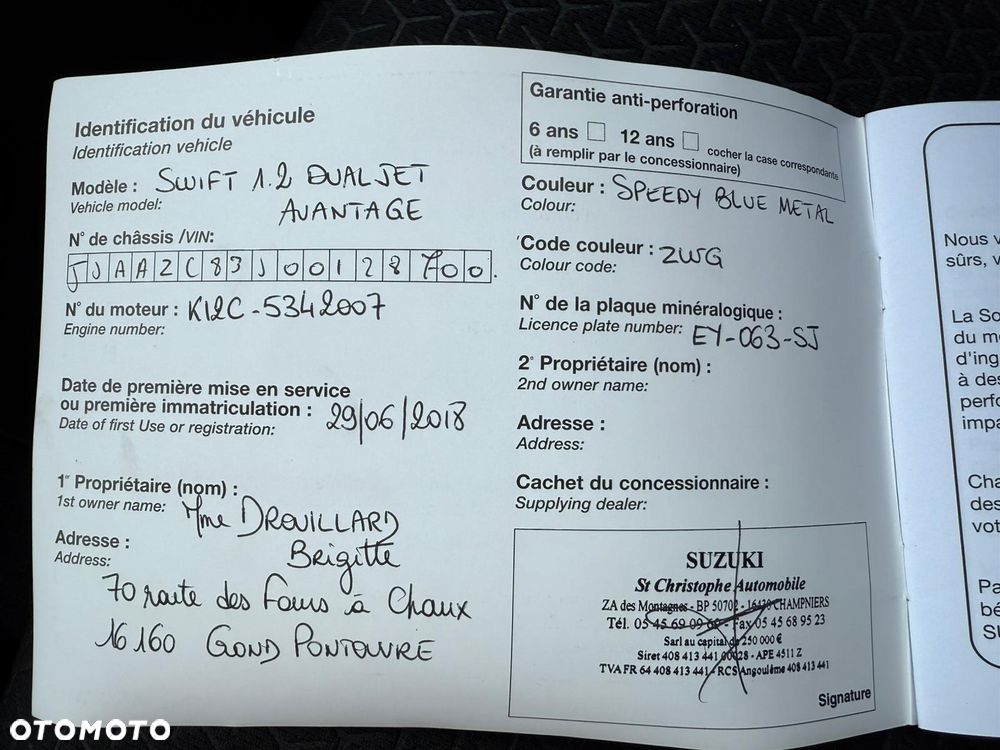 Identification du véhicule
Identification vehicle
Modèle : SWIFT 1.2 DUALJET
Vehicle model: AVANTAGE
N° de châssis /VIN:
JJAAZC83J00128700.
N° du moteur : K12C-5342007
Engine number:
Date de première mise en service
ou première immatriculation : 29/06/2018
Date of first Use or registration:
1er Propriétaire (nom) :
1st owner name: Mme DROUILLARD
Brigitte
Adresse :
Address:
70 route des Fours à Chaux
16160 GOND PONTOUVRE
Garantie anti-perforation
6 ans 12 ans cocher la case correspondante
(à remplir par le concessionnaire)
Couleur : SPEEDY BLUE METAL
Colour:
Code couleur : ZWG
Colour code:
N° de la plaque minéralogique :
Licence plate number: EY-063-SJ
2e Propriétaire (nom) :
2nd owner name:
Adresse :
Address:
Cachet du concessionnaire :
Supplying dealer:
SUZUKI
St Christophe Automobile
ZA des Montagnes - BP 50702 - 16430 CHAMPNIERS
Tél. 05 45 69 09 69 - Fax 05 45 68 95 23
Sarl au capital de 250 000 €
Siret 408 413 441 00028 - APE 4511 Z
TVA FR 64 408 413 441 - RCS Angoulême 408 413 441
Signature
Nous v
sûrs, v
La So
du m
d'ing
à des
perfo
impa
Cha
des
vot
Pa
bé
SU
OTOMOTO